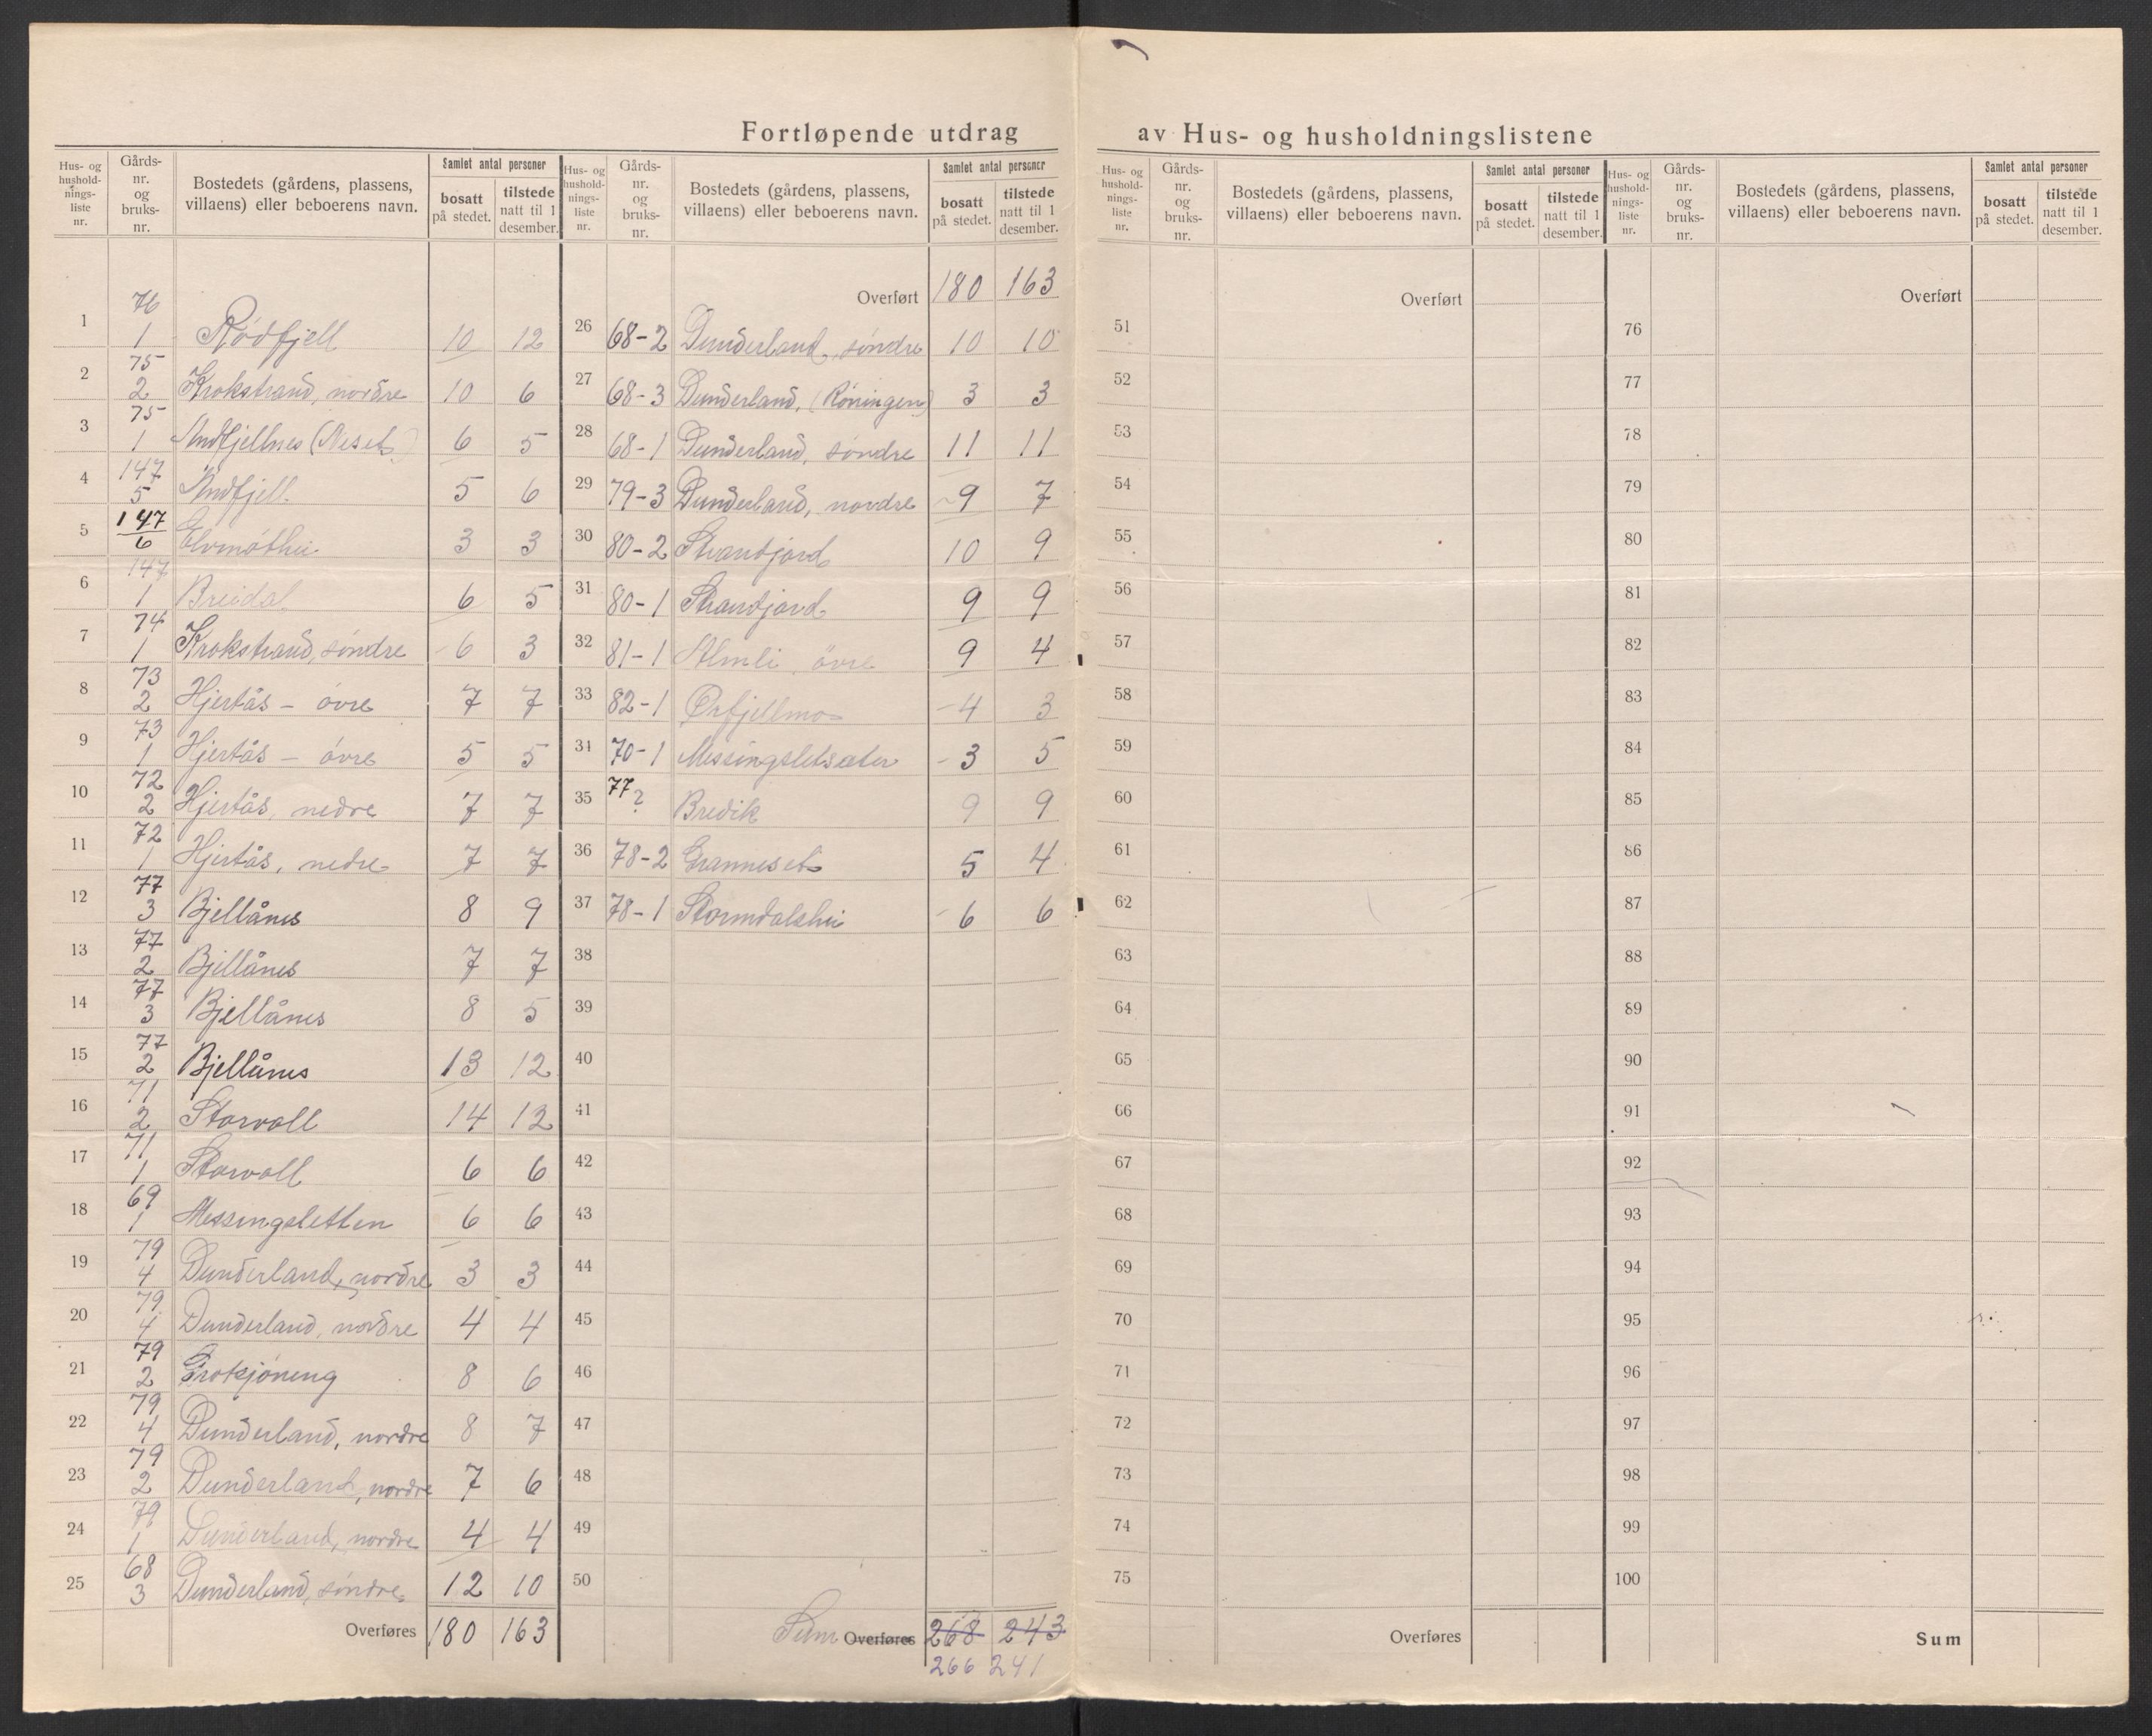 Fortløpende utdrag av Hus- og husholdningslistene
Hus- og hushold-nings-liste nr. | Gårds-nr. og bruks-nr. | Bostedets (gårdens, plassens, villaens) eller beboerens navn. | Samlet antal personer | bosatt på stedet. | tilstede natt til 1 desember.
1 | 76 1 | Rödfjell | 10 | 12
2 | 75 2 | Krokstrand, nordre | 10 | 6
3 | 75 1 | Andfjellnes (Neset) | 6 | 5
4 | 147 5 | Andfjell. | 5 | 6
5 | 147 6 | Elvmöthei | 3 | 3
6 | 147 1 | Breidal | 6 | 5
7 | 74 1 | Krokstrand, söndre | 6 | 3
8 | 73 2 | Hjertås – övre | 7 | 7
9 | 73 1 | Hjertås – övre | 5 | 5
10 | 72 2 | Hjertås, nedre | 7 | 7
11 | 72 1 | Hjertås, nedre | 7 | 7
12 | 77 3 | Bjellånes | 8 | 9
13 | 77 2 | Bjellånes | 7 | 7
14 | 77 3 | Bjellånes | 8 | 5
15 | 77 2 | Bjellånes | 13 | 12
16 | 71 2 | Storvoll | 14 | 12
17 | 71 1 | Storvoll | 6 | 6
18 | 69 1 | Messingsletten | 6 | 6
19 | 79 4 | Dunderland, nordre | 3 | 3
20 | 79 4 | Dunderland, nordre | 4 | 4
21 | 79 2 | 8 | 6
22 | 79 4 | Dunderland, nordre | 8 | 7
23 | 79 2 | Dunderland, nordre | 7 | 6
24 | 79 1 | Dunderland, nordre | 4 | 4
25 | 68 3 | Dunderland, söndre | 12 | 10
Overføres | 180 | 163
Hus- og hushold-nings-liste nr. | Gårds-nr. og bruks-nr. | Bostedets (gårdens, plassens, villaens) eller beboerens navn. | Samlet antal personer | bosatt på stedet. | tilstede natt til 1 desember.
Overført | 180 | 163
26 | 68-2 | Dunderland, söndre | 10 | 10
27 | 68-3 | Dunderland, (Röningen) | 3 | 3
28 | 68-1 | Dunderland, söndre | 11 | 11
29 | 79-3 | Dunderland, nordre | 9 | 7
30 | 80-2 | Strandjord | 10 | 9
31 | 80-1 | Strandjord | 9 | 9
32 | 81-1 | Almli övre | 9 | 4
33 | 82-1 | Örfjellmo | 4 | 3
34 | 70-1 | Messingsletsæter | 3 | 5
35 | 77 ? | Bredik | 9 | 9
36 | 78-2 | Granneset | 5 | 4
37 | 78-1 | Stormdalshei | 6 | 6
38
39
40
41
42
43
44
45
46
47
48
49
50
Sum Overføres | 268 | 243
266 241
Hus- og hushold-nings-liste nr. | Gårds-nr. og bruks-nr. | Bostedets (gårdens, plassens, villaens) eller beboerens navn. | Samlet antal personer | bosatt på stedet. | tilstede natt til 1 desember.
Overført
51
52
53
54
55
56
57
58
59
60
61
62
63
64
65
66
67
68
69
70
71
72
73
74
75
Overføres
Hus- og hushold-nings-liste nr. | Gårds-nr. og bruks-nr. | Bostedets (gårdens, plassens, villaens) eller beboerens navn. | Samlet antal personer | bosatt på stedet. | tilstede natt til 1 desember.
Overført
76
77
78
79
80
81
82
83
84
85
86
87
88
89
90
91
92
93
94
95
96
97
98
99
100
Sum